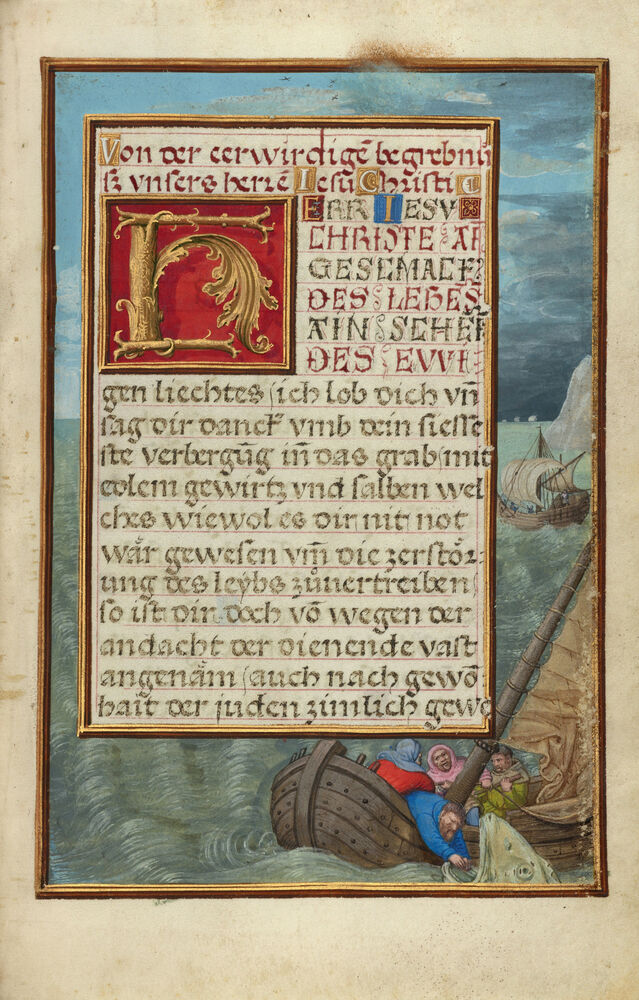 Von der eerwirdigē begrebnü
sz vnsers herrē Iesu Christi
HERR IESV
CHRISTE AI
GESCMACK
DES LEBES
AIN SCHEI
DES EWI
gen liechtes (ich lob dich vn̄
sag dir danck vmb dein siesse
ste verbergūg in das grab (mit
edlem gewirtz vnd salben wel
ches wiewol es dir nit not
wär gewesen vm̄ die zerstör
ung des leybs zůuertreiben
so ist dir doch vō wegen der
andacht der dienende vast
angenäm (auch nach gewō
hait der juden zimlich gewe